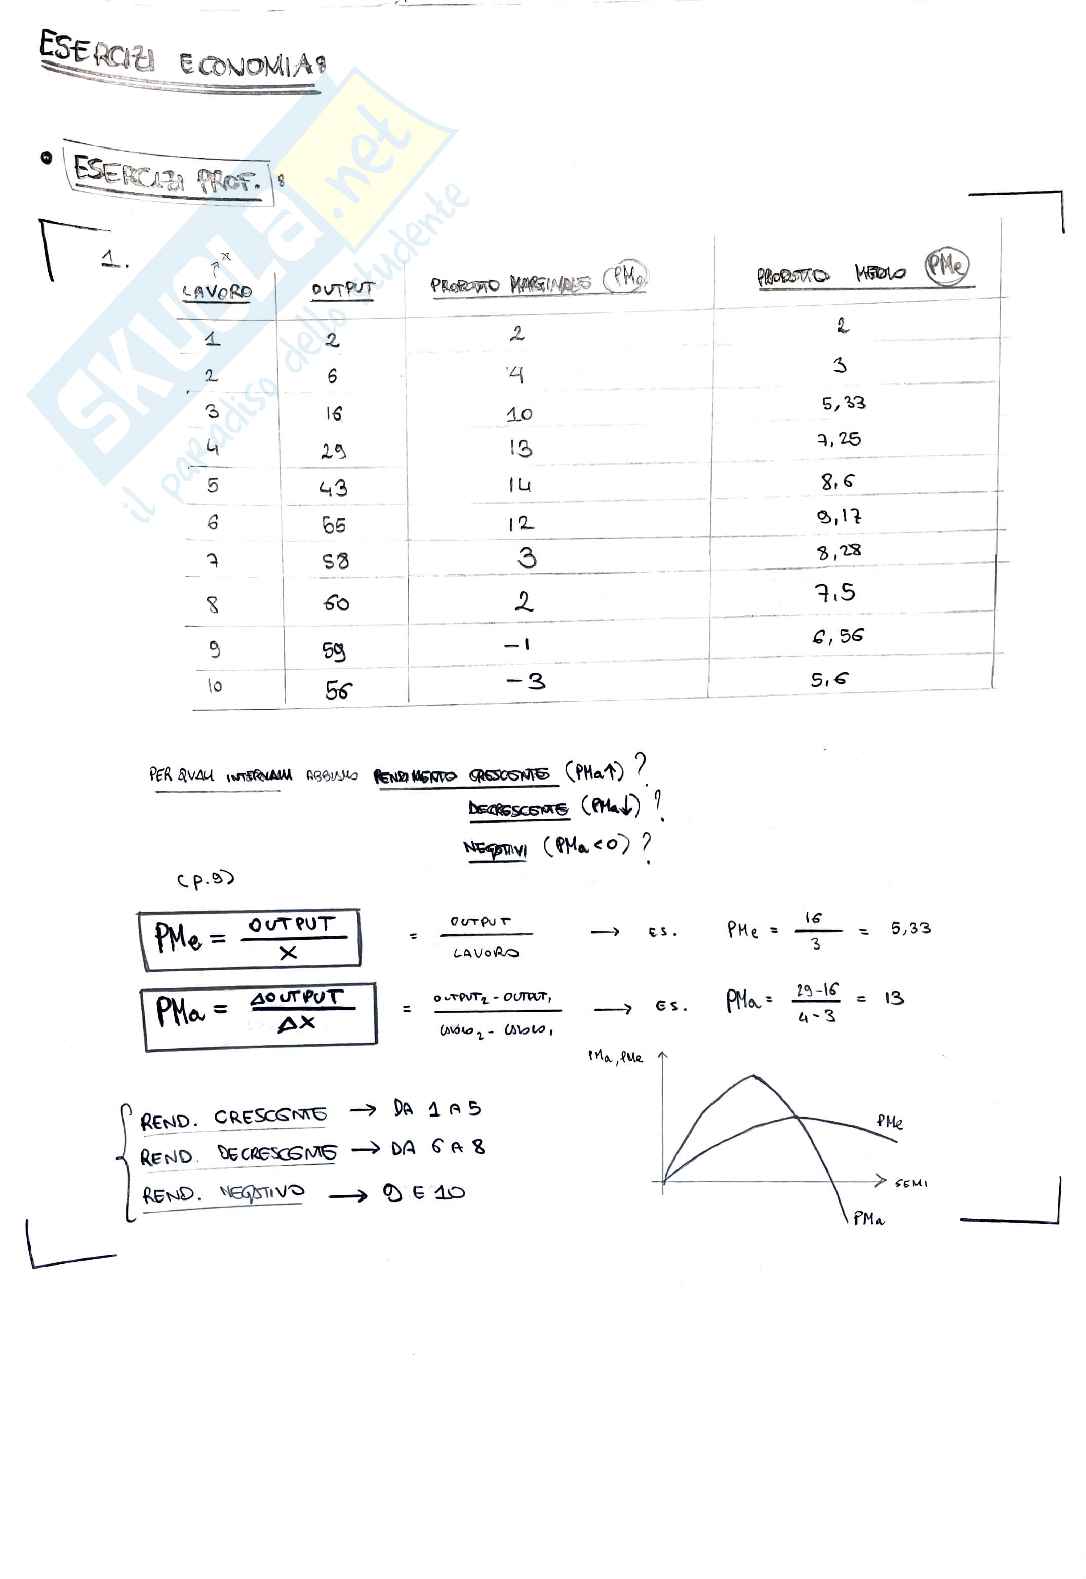 ESERCIZI ECONOMIA:
• ESERCIZI PROF. :
SKUOLA.net
il paradiso dello studente
1.
x
LAVORO OUTPUT PRODOTTO MARGINALE (PMa) PRODOTTO MEDIO (PMe)
1 2 2 2
2 6 4 3
3 16 10 5,33
4 29 13 7,25
5 43 14 8,6
6 55 12 9,17
7 58 3 8,28
8 60 2 7,5
9 59 -1 6,56
10 56 -3 5,6
PER QUALI INTERVALLI ABBIAMO RENDIMENTO CRESCENTE (PMa↑)?
DECRESCENTE (PMa↓)?
NEGATIVI (PMa<0)?
(p.9)
PMe = OUTPUT / X = OUTPUT / LAVORO → ES. PMe = 16 / 3 = 5,33
PMa = ΔOUTPUT / ΔX = OUTPUT₂ - OUTPUT₁ / LAVORO₂ - LAVORO₁ → ES. PMa = 29-16 / 4-3 = 13
PMa, PMe
REND. CRESCENTE → DA 1 A 5
PMe
REND. DECRESCENTE → DA 6 A 8
SEMI
REND. NEGATIVO → 9 E 10
PMa